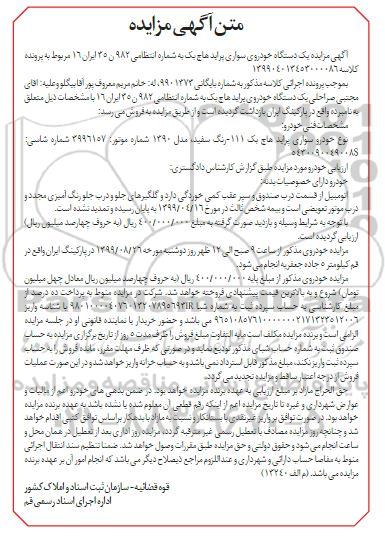 متن آگهی مزایده
آگهی مزایده یک دستگاه خودروی سواری پراید هاچ بک به شماره انتظامی ۹۸۲ ن ۳۵ ایران ۱۶ مربوط به پرونده
کلاسه ۱۳۹۹۰۴۰۱۳۴۵۳۰۰۰۰۸۶
بموجب پرونده اجرائی کلاسه مذکور به شماره بایگانی ۹۹۰۱۳۷۳، له: خانم مریم معروف پور آقابیگلو وعلیه: آقای
مجتبی صراحلی یک دستگاه خودروی پراید هاچ بک به شماره انتظامی ۹۸۲ ن ۳۵ ایران ۱۶ با مشخصات ذیل متعلق
به نامبرده واقع در پارکینگ ایران بازداشت گردیده است و از طریق مزایده به فروش می رسد:
مشخصات فنی خودرو:
نوع خودرو سواری پراید هاچ بک ۱۱۱-رنگ سفید، مدل ۱۳۹۰ شماره موتور: ۳۹۹۶۱۵۷ شماره شاسی:
ارزیابی خودرو مورد مزایده طبق گزارش کارشناس دادگستری:
خودرو دارای خصوصیات بدنه:
اتومبیل از قسمت درب صندوق و سپر عقب کمی خوردگی دارد و گلگیرهای جلو و درب جلو رنگ آمیزی مجدد و
درب موتور تعویضی است و بیمه شخص ثالث در مورخ ۱۳۹۹/۰۴/۱۶ به پایان رسیده و تمدید نشده است.
با توجه به شرایط وسیله و بازدید صورت گرفته به مبلغ ۴۰۰/۰۰۰/۰۰۰ ریال (به حروف چهارصد میلیون ریال)
ارزیابی گردیده است.
مزایده خودروی مذکور از ساعت ۹ صبح الی ۱۲ ظهر روز دوشنبه مورخه ۱۳۹۹/۰۸/۲۶ در پارکینگ ایران واقع در
قم کیلومتر ۵ جاده جعفریه انجام می شود.
مزایده خودروی مذکور از مبلغ پایه ۴۰۰/۰۰۰/۰۰۰ ریال (به حروف چهارصد میلیون ریال معادل چهل میلیون
تومان) شروع و به بالاترین قیمت پیشنهادی فروخته خواهد شد. شرکت در مزایده منوط به پرداخت ده درصد از
مبلغ کارشناسی به حساب سپرده ثبت به شماره شبا با شناسه واریز
می باشد و حضور خریدار یا نماینده قانونی او در جلسه مزایده
الزامی است و برنده مزایده مکلف است مابه التفاوت مبلغ فروش را ظرف مدت ۵ روز از تاریخ برگزاری مزایده به حساب
صندوق ثبت به شماره حساب شبای مذکور تودیع نماید و در صورتی که ظرف مهلت مقرر، مانده فروش را به حساب
سپرده ثبت واریز نکند، مبلغ مذکور قابل استرداد نمی باشد و به حساب خزانه واریز خواهد شد و در این صورت عملیات
فروش از درجه اعتبار ساقط و مزایده تجدید می گردد.
حق الحراج مازاد بر مبلغ ارزیابی به عهده برنده مزایده خواهد بود. در ضمن بدهی های خودرو اعم از مالیات و
عوارض شهرداری و غیره تا تاریخ مزایده اعم از اینکه رقم قطعی آن معلوم شده یا نشده باشد به عهده برنده مزایده
خواهد بود. در صورت توافق بر واریز غیرنقدی با بستانکار و نسبت به مازاد با بدهکار براساس توافق کتبی اقدام خواهد
شد و چنانچه روز مزایده مصادف با تعطیل رسمی غیرمترقبه گردد، مزایده روز اداری بعد از تعطیل در همان محل و
ساعت انجام می شود و حقوق دولتی و حق مزایده طبق مقررات وصول خواهد شد. ضمنا تنظیم سند انتقال اجرائی
منوط به مفاصا حساب دارائی و شهرداری و عنداللزوم مراجع ذیصلاح دیگر می باشد که انجام امور آن بر عهده برنده
مزایده می باشد. (م الف ۱۳۲۴۰)
قوه قضائیه- سازمان ثبت اسناد و املاک کشور
اداره اجرای اسناد رسمی قم